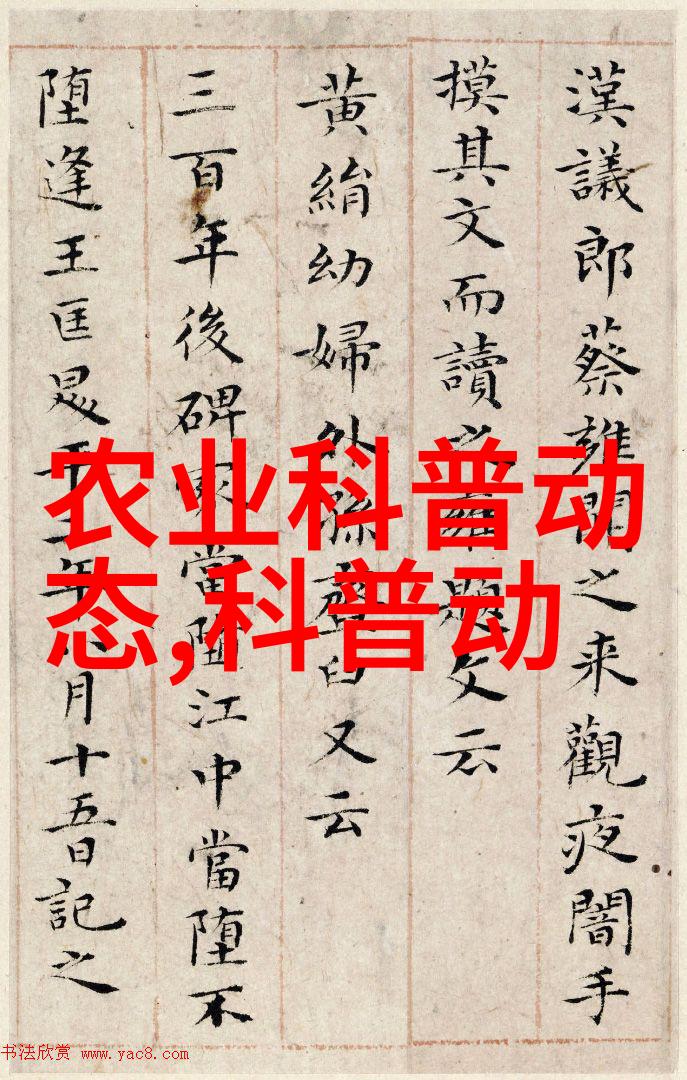 漢議郎蔡雍聞之来觀夜闇手
摸其文而讀之雍題文云
黄絹幼婦外孫韲臼又云
三百年後碑冢當堕江中當堕不
堕逢王匡年月十五日記之
农业科普动
态,科普动
书法欣赏 www.yac8.com